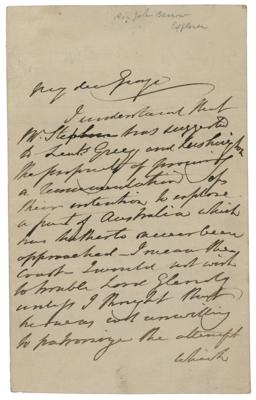 Sir John Barrow
Explorer
My dear George
I understand that
Mr Stephen has suggested
to Lieuts Grey and Lushington
the propriety of procuring
a recommendation of
their intention to explore
a part of Australia which
has hitherto never been
approached – I mean the
coast – I would not wish
to trouble Lord Glenelg
unless I thought that
he was not unwilling
to patronize the attempt
which